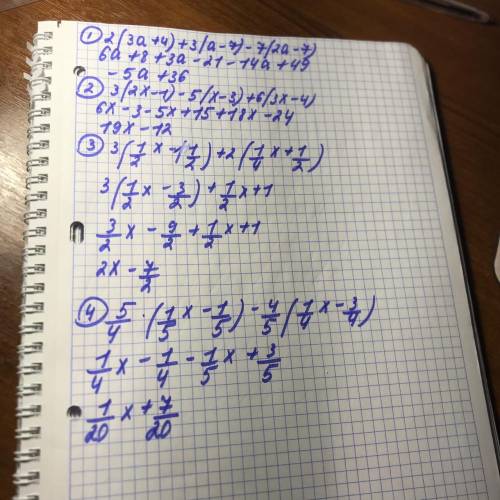 ① 2(3a+4)+3(a-7)-7(2a-7)
6a+8+3a-21-14a+49
-5a+36
② 3(2x-1)-5(x-3)+6(3x-4)
6x-3-5x+15+18x-24
19x-12
③ 3(1/2 x - 1 1/2)+2(1/4 x + 1/2)
3(1/2 x - 3/2)+1/2 x+1
3/2 x - 9/2 + 1/2 x+1
2x - 7/2
④ 5/4 · (1/5 x - 1/5) - 4/5 (1/4 x - 3/4)
1/4 x - 1/4 - 1/5 x + 3/5
1/20 x + 7/20